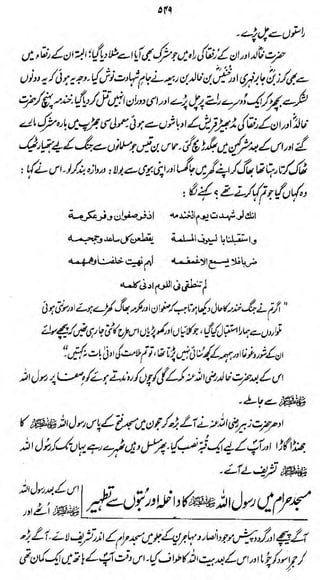 ۵۴۹
راستوں سے چل پڑے۔
حضرت خالد اور ان کے رفقا کی راہ میں جو مشرک بھی آیا اسے سلا دیا گیا؛ البتہ ان کے رفقاء میں
سے بھی کرز بن جابر فہری اور خنیس بن خالد بن ربیعہ نے جام شہادت نوش کیا۔ وجہ یہ ہوئی کہ یہ دونوں
لشکر سے بچھڑ کر ایک دوسرے راستے پر چل پڑے اور اسی دوران انہیں قتل کر دیا گیا۔ خندمہ پہنچ کر حضرت
خالد اور ان کے رفقا کی مڈ بھیڑ قریش کے اوباشوں سے ہوئی۔ معمولی سی جھڑپ میں بارہ مشرک مارے
گئے اور اس کے بعد مشرکین میں بھگدڑ مچ گئی۔ حماس بن قیس جو مسلمانوں سے جنگ کے لیے ہتھیار ٹھیک
ٹھاک کرتا رہتا تھا بھاگ کر اپنے گھر میں جا گھسا اور اپنی بیوی سے بولا: دروازہ بند کر لو۔ اس نے کہا:
وہ کہاں گیا جو تم کہا کرتے تھے؟ کہنے لگا:
انك لو شهدت يوم الخندمه اذ فر صفوان و فر عكرمة
و استقبلنا بالسيوف المسلمة يقطعن كل ساعد وجمجمه
ضربا فلا يسمع الا غمغمه لهم نهيت خلفنا وهمهمه
لم تنطقى فى اللوم ادنى كلمه
"اگر تم نے جنگ خندمہ کا حال دیکھا ہوتا جب کہ صفوان اور عکرمہ بھاگ کھڑے ہوئے اور سونتی ہوئی
تلواروں سے ہمارا استقبال کیا گیا، جو کلائیاں اور کھوپڑیاں اس طرح کاٹتی جا رہی تھیں کہ پیچھے سوائے
ان کے شور و غوغا اور ہمہمہ کے کچھ سنائی نہیں پڑتا تھا، تو تم ملامت کی ادنیٰ بات نہ کہتیں۔"
اس کے بعد حضرت خالد رضی اللہ عنہ مکہ کے گلی کوچوں کو روندتے ہوئے کوہ صفا پر رسول اللہ
ﷺ سے جا ملے۔
ادھر حضرت زبیر رضی اللہ عنہ نے آگے بڑھ کر حجون میں مسجد فتح کے پاس رسول اللہ ﷺ کا
جھنڈا گاڑا اور آپ کے لیے ایک قبہ نصب کیا۔ پھر مسلسل وہیں ٹھہرے رہے یہاں تک کہ رسول اللہ
ﷺ تشریف لے آئے۔
مسجد حرام میں رسول اللہ ﷺ کا داخلہ اور بتوں سے تطہیر
اس کے بعد رسول اللہ
ﷺ اٹھے اور
آگے پیچھے اور گرد و پیش موجود انصار و مہاجرین کے جلو میں مسجد حرام کے اندر تشریف لائے۔ آگے بڑھ
کر حجر اسود کو چوما اور اس کے بعد بیت اللہ کا طواف کیا۔ اس وقت آپ کے ہاتھ میں ایک کمان تھی